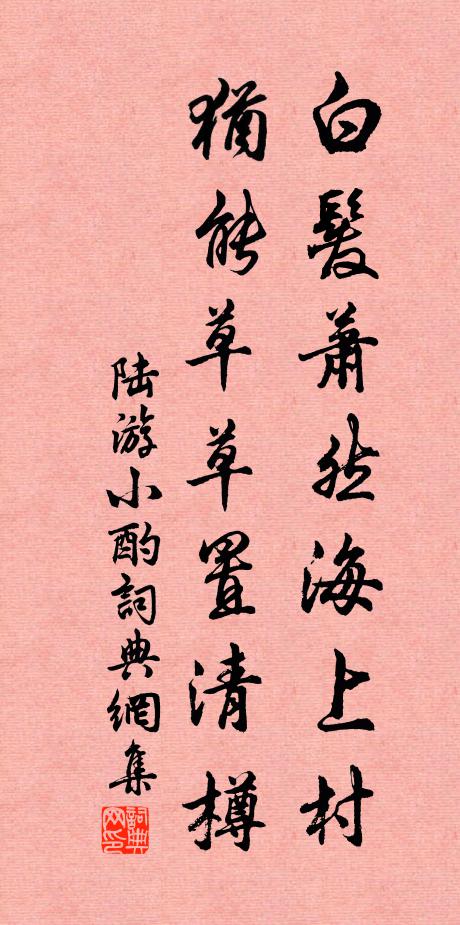 白髮蕭然海上村
猶能草草置清樽
陸游小酌詞典網集
詞典网印